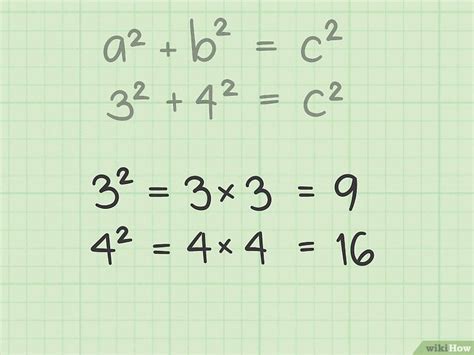 a² + b² = c²
3² + 4² = c²
3² = 3 × 3 = 9
4² = 4 × 4 = 16
wikiHow